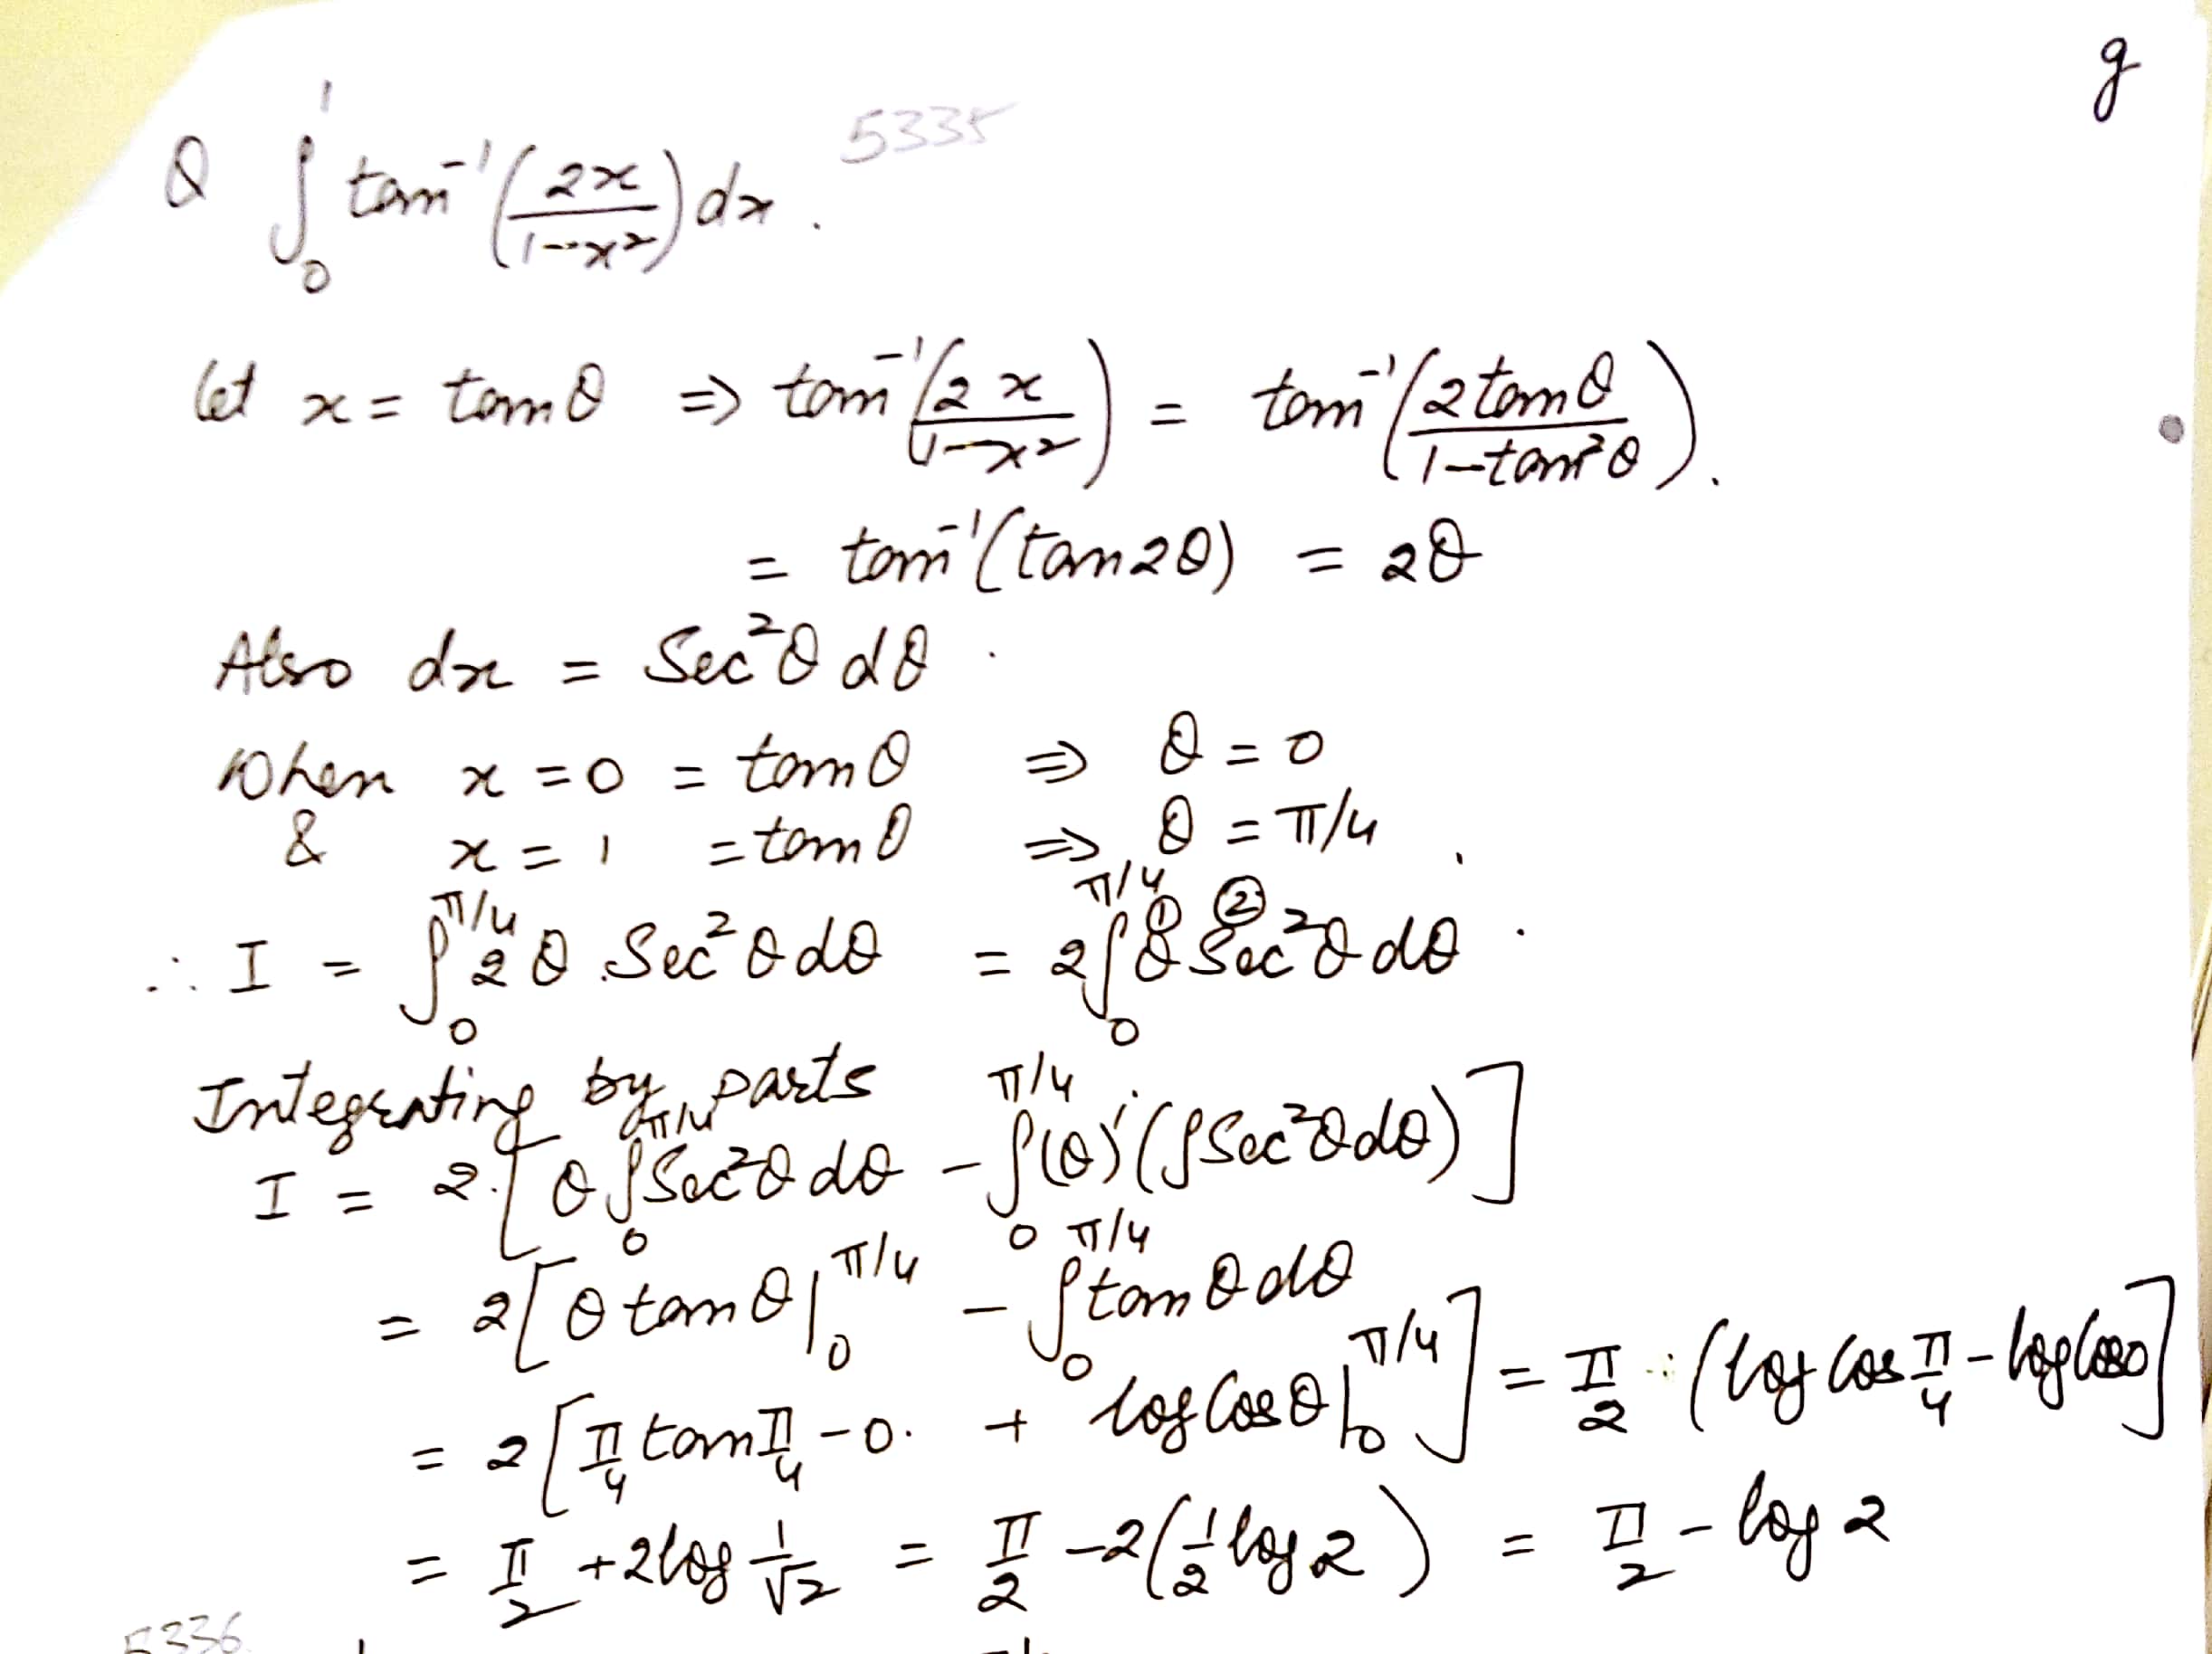 g
5335
Q ∫₀¹ tan⁻¹(2x/(1-x²)) dx.
let x = tanθ ⇒ tan⁻¹(2x/(1-x²)) = tan⁻¹(2tanθ/(1-tan²θ)).
= tan⁻¹(tan2θ) = 2θ
Also dx = Sec²θ dθ.
When x = 0 = tanθ ⇒ θ = 0
& x = 1 = tanθ ⇒ θ = π/4.
∴ I = ∫₀^{π/4} 2θ.Sec²θdθ = 2∫₀^{π/4} θ① Sec²θ② dθ.
Integrating by parts
I = 2.[θ∫₀^{π/4}Sec²θdθ - ∫₀^{π/4}(θ)'(∫Sec²θdθ)]
= 2[θtanθ|₀^{π/4} - ∫₀^{π/4}tanθdθ
= 2[π/4 tanπ/4 - 0. + logCosθ|₀^{π/4}] = π/2 (log Cos π/4 - log Cos0]
= π/2 + 2log 1/√2 = π/2 - 2(1/2 log 2) = π/2 - log 2
5336